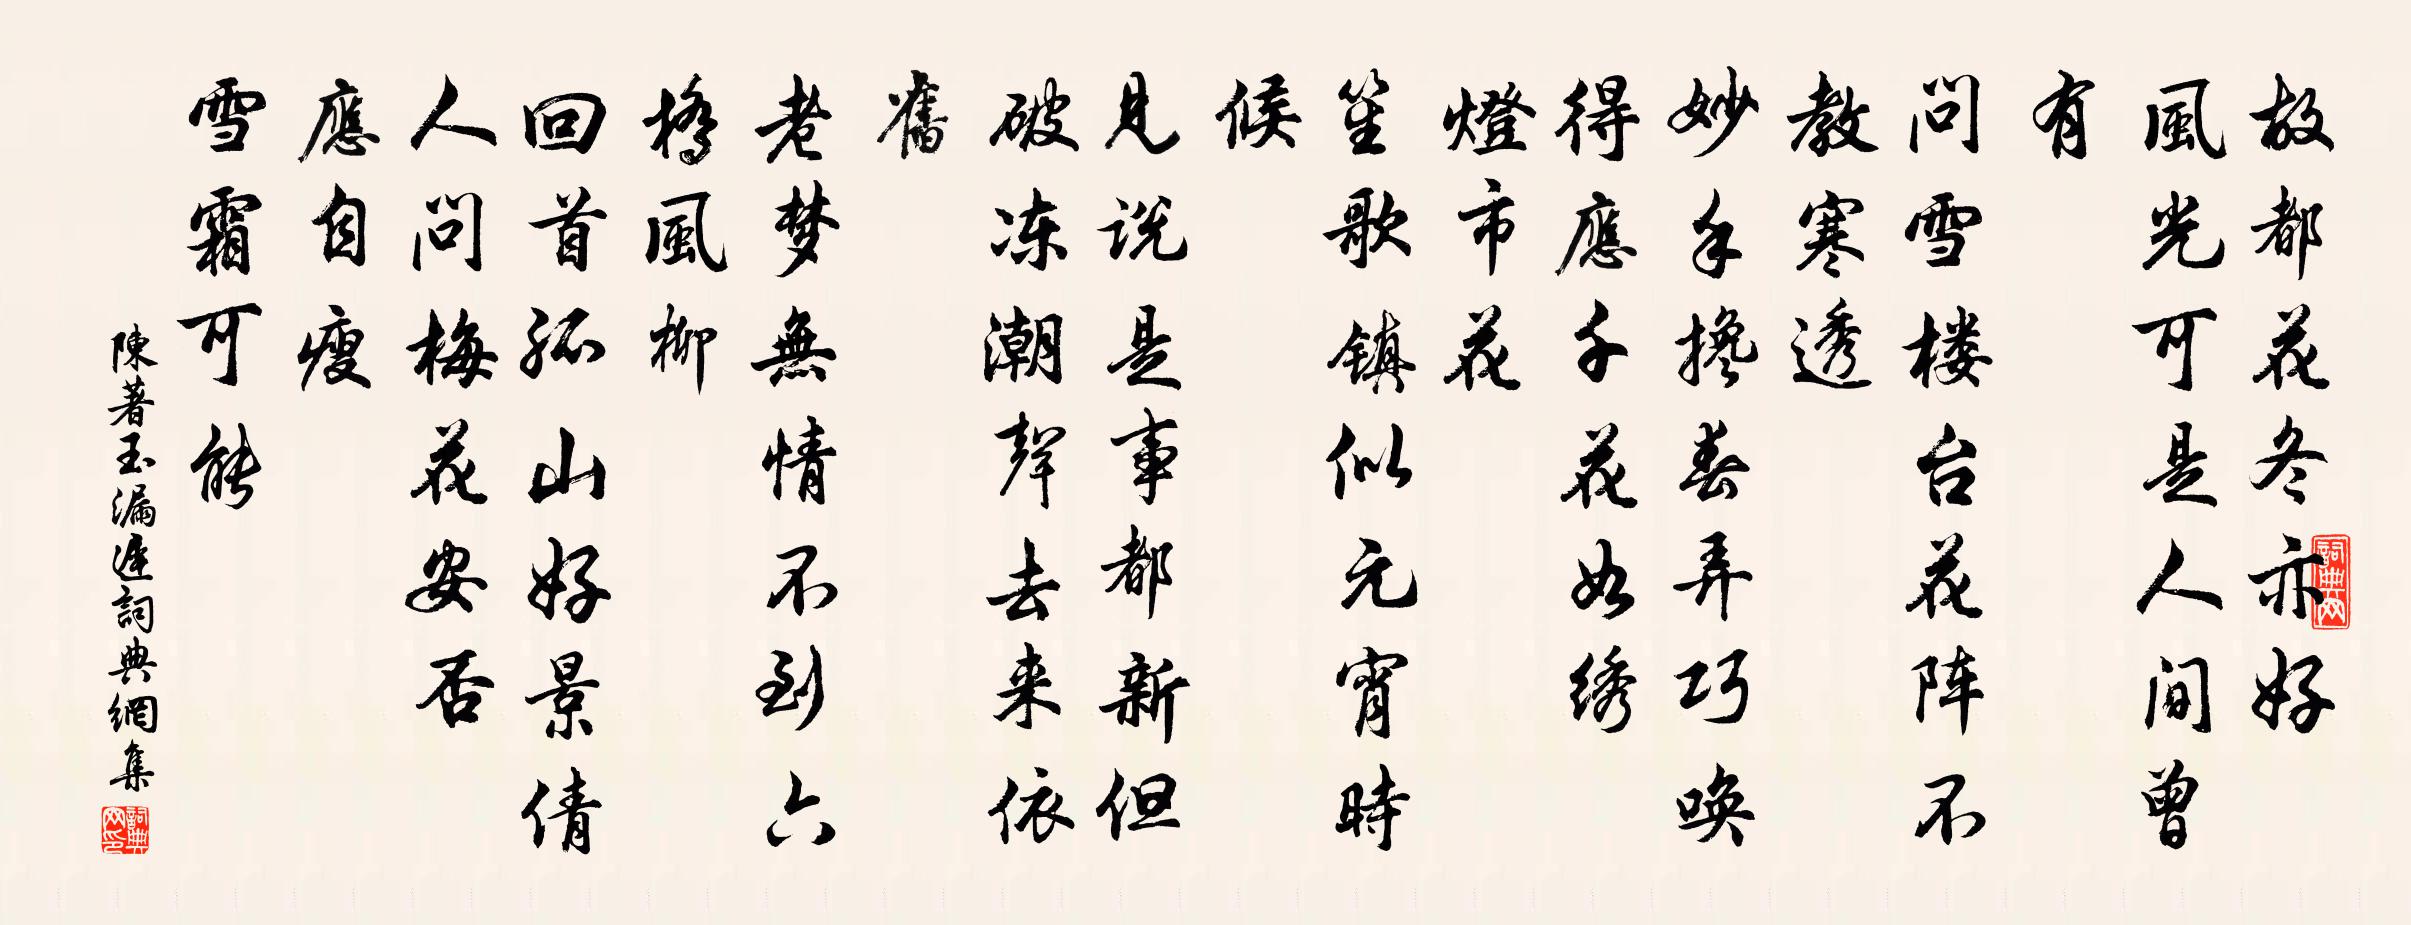 故都花冬亦好
風光可是人间曾
有
问雪楼台花阵不
教寒透
妙手搀春弄巧唤
得應千花如绣
燈市花
笙歌镇似元宵時
候
见说是事都新但
破冻潮聲去来依
舊
老梦無情不到六
橋風柳
回首孤山好景倩
人问梅花安否
應自瘦
雪霜可能
陳著玉漏遲詞典網集
詞典网
詞典网印